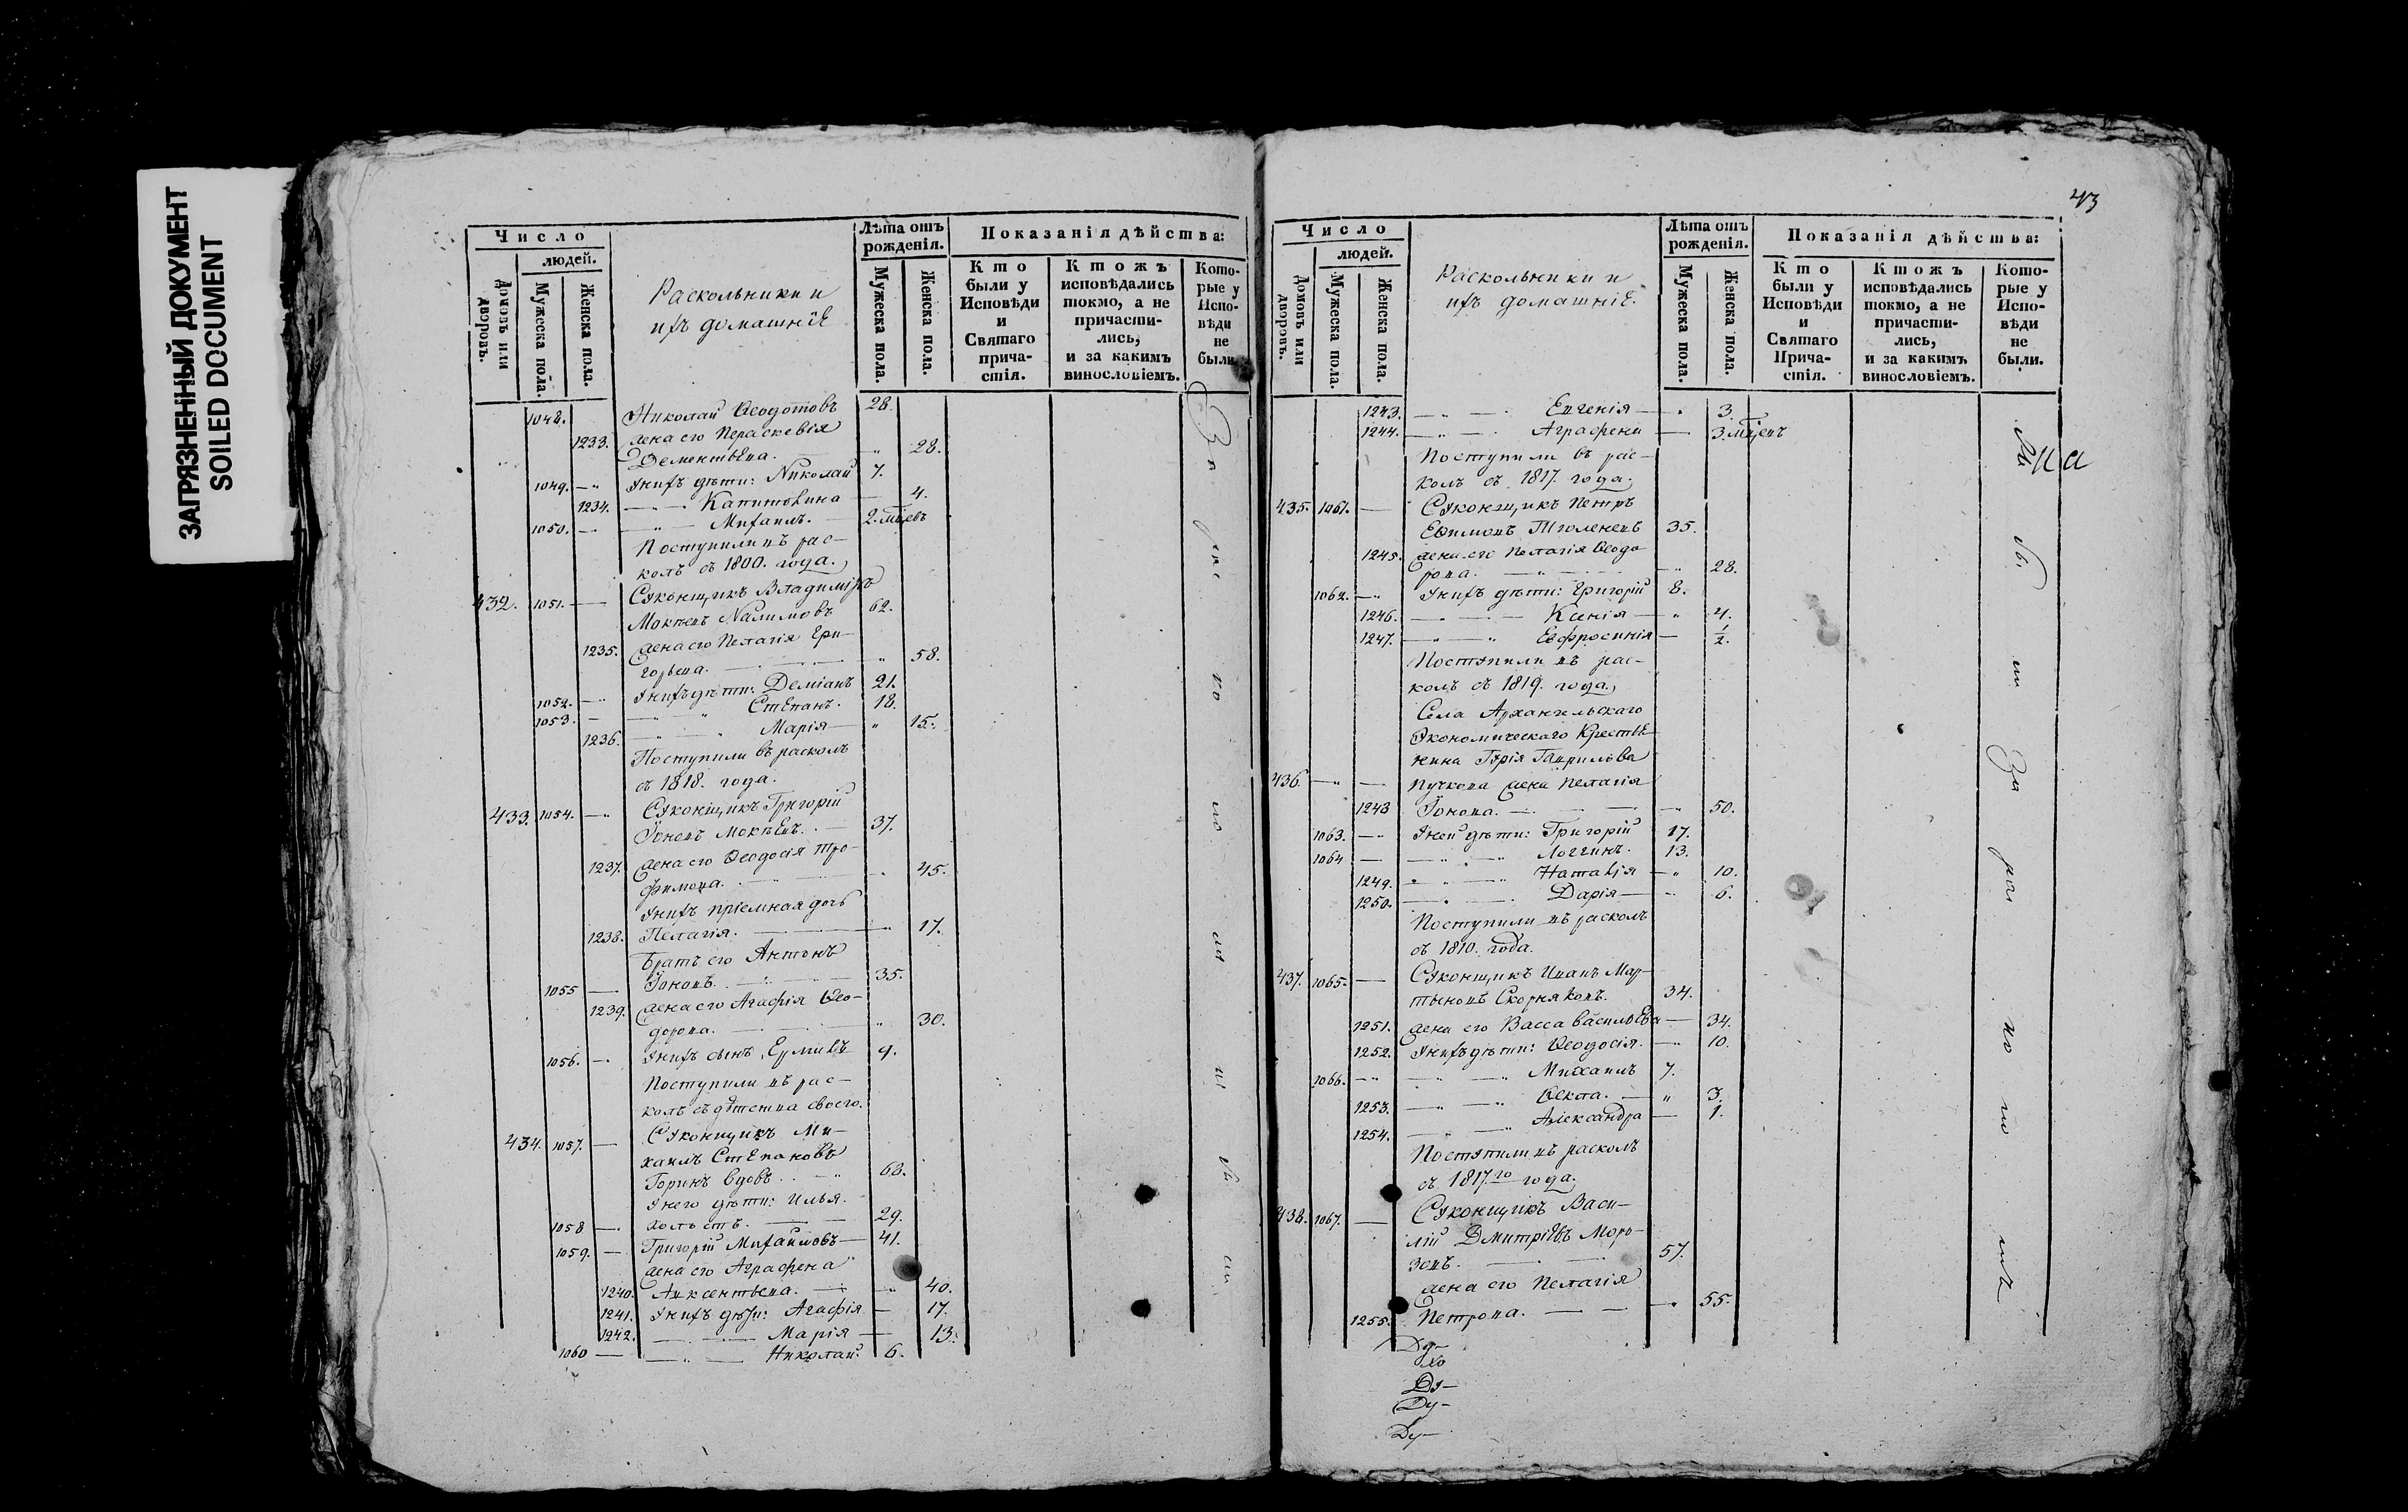 ЗАГРЯЗНЕННЫЙ ДОКУМЕНТ
SOILED DOCUMENT
Число
людей.
Домовъ или дворовъ.
Мужеска пола.
Женска пола.
Раскольники и
ихъ домашнїе
Лѣта отъ рожденія.
Мужеска пола.
Женска пола.
Показанія дѣйства:
Кто были у Исповѣди и Святаго причастія.
Ктожъ исповѣдались токмо, а не причастились, и за какимъ винословіемъ.
Которые у Исповѣди не были
1048. Николай Ѳеодотовъ 28.
1233. жена его Параскевія
Дементьева. 28.
1049. У нихъ дѣти: Николай 7.
1234. Капитовина 4.
1050. Михаилъ. 2. мѣцевъ
Поступили въ рас-
колъ съ 1800. года.
432. 1051. Суконщикъ Владиміръ
Мокѣевъ Налимовъ 62.
1235. жена его Пелагія Гри-
горьева. 58.
1052. У нихъ дѣти: Деміанъ 21.
1053. Стефанъ. 18.
1236. Марія 15.
Поступили въ расколъ
съ 1818. года.
433. 1054. Суконщикъ Григорій
Мокѣевъ. 37.
1237. жена его Ѳеодосія Тро-
фимова. 45.
У нихъ пріемная дочь
1238. Пелагія. 17.
Братъ его Антонъ
1055 Іоновъ. 35.
1239. жена его Агафія Ѳео-
дорова. 30.
1056. У нихъ сынъ 9.
Поступили въ рас-
колъ съ дѣтства своего.
434. 1057. Суконщикъ Ми-
хаилъ Степановъ
Горинъ вдовъ. 68.
У него дѣти: Илья.
1058 холостъ. 29.
1059. Григорій Михайловъ 41.
жена его Аграфена
1240. Авксентьева. 40.
1241. У нихъ дѣти: Агафія 17.
1242. Марія 13.
1060 Николай. 6.
43
Число
людей.
Домовъ или дворовъ.
Мужеска пола.
Женска пола.
Раскольники и
ихъ домашніе.
Лѣта отъ рожденія.
Мужеска пола.
Женска пола.
Показанія дѣйства:
Кто были у Исповѣди и Святаго Причастія.
Ктожъ исповѣдались токмо, а не причастились, и за какимъ винословіемъ.
Которые у Исповѣди не были.
1243. Евгенія 3.
1244. Аграфена 3. мѣцевъ
Поступили въ рас-
колъ съ 1817. года.
435. 1061. Суконщикъ Петръ
Ефимовъ 35.
1245. жена его Пелагія Ѳеодо-
рова. 28.
1062. У нихъ дѣти: Григорій 8.
1246. Ксенія 4.
1247. Евфросинія 1/2.
Поступили въ рас-
колъ съ 1819. года.
Села Архангельскаго
Экономическаго Крестья-
нина Гурія Гаврилова
436. Пучкова жена Пелагія
1248 Іонова. 50.
1063. У ней дѣти: Григорій 17.
1064 Логгинъ. 13.
1249. Наталія 10.
1250. Дарія 6.
Поступили въ расколъ
съ 1810. года.
437. 1065. Суконщикъ Иванъ Мар-
тыновъ Скорняковъ. 34.
1251. жена его Васса Васильева 34.
1252. У нихъ дѣти: Ѳеодосія. 10.
1066. Михаилъ 7.
1253. Ѳекла. 3.
1254. Александра 1.
Поступили въ расколъ
съ 1817го года.
438. 1067. Суконщикъ Васи-
лій Дмитріевъ Моро-
зовъ. 57.
жена его Пелагія
1255. Петрова. 55.